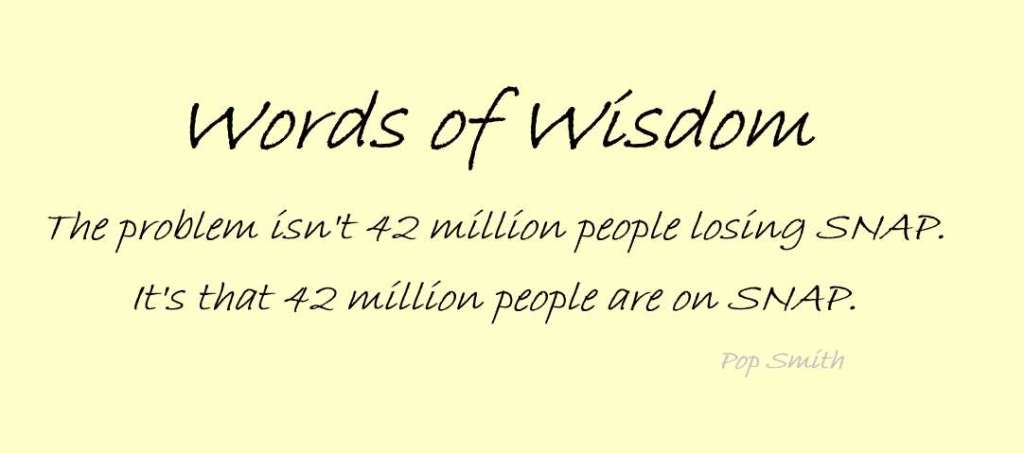 Words of Wisdom
The problem isn't 42 million people losing SNAP.
It's that 42 million people are on SNAP.
Pop Smith